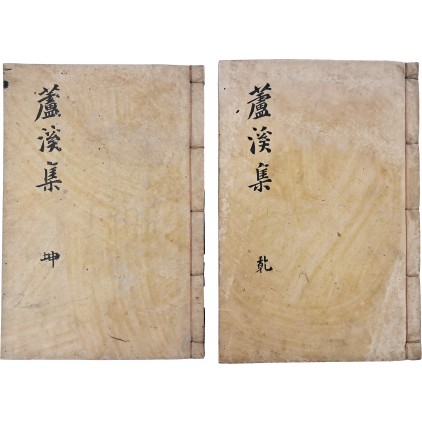 蘆溪集
乾
蘆溪集
坤